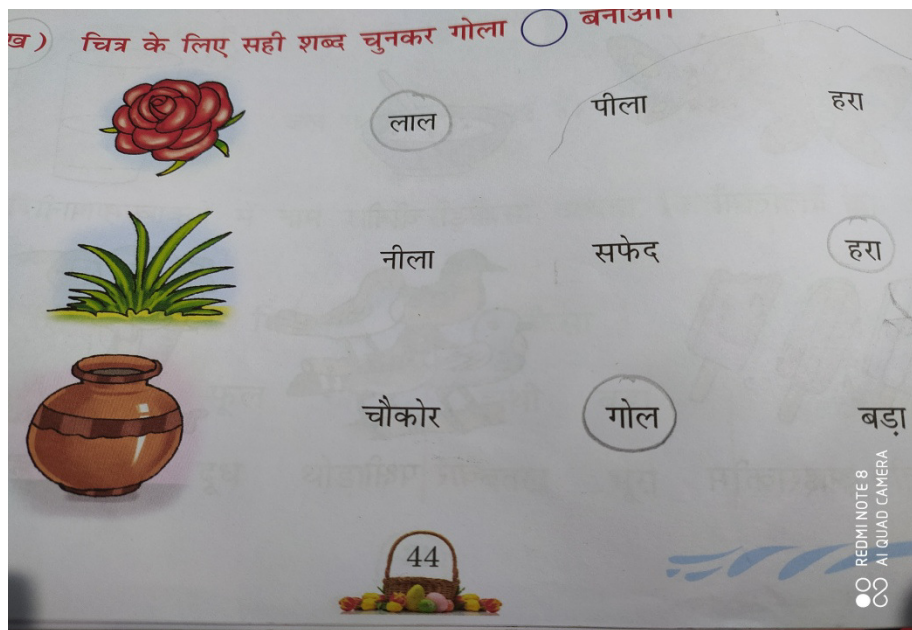 ख) चित्र के लिए सही शब्द चुनकर गोला बनाओ।
लाल पीला हरा
नीला सफेद हरा
चौकोर गोल बड़ा
44
REDMI NOTE 8
AI QUAD CAMERA